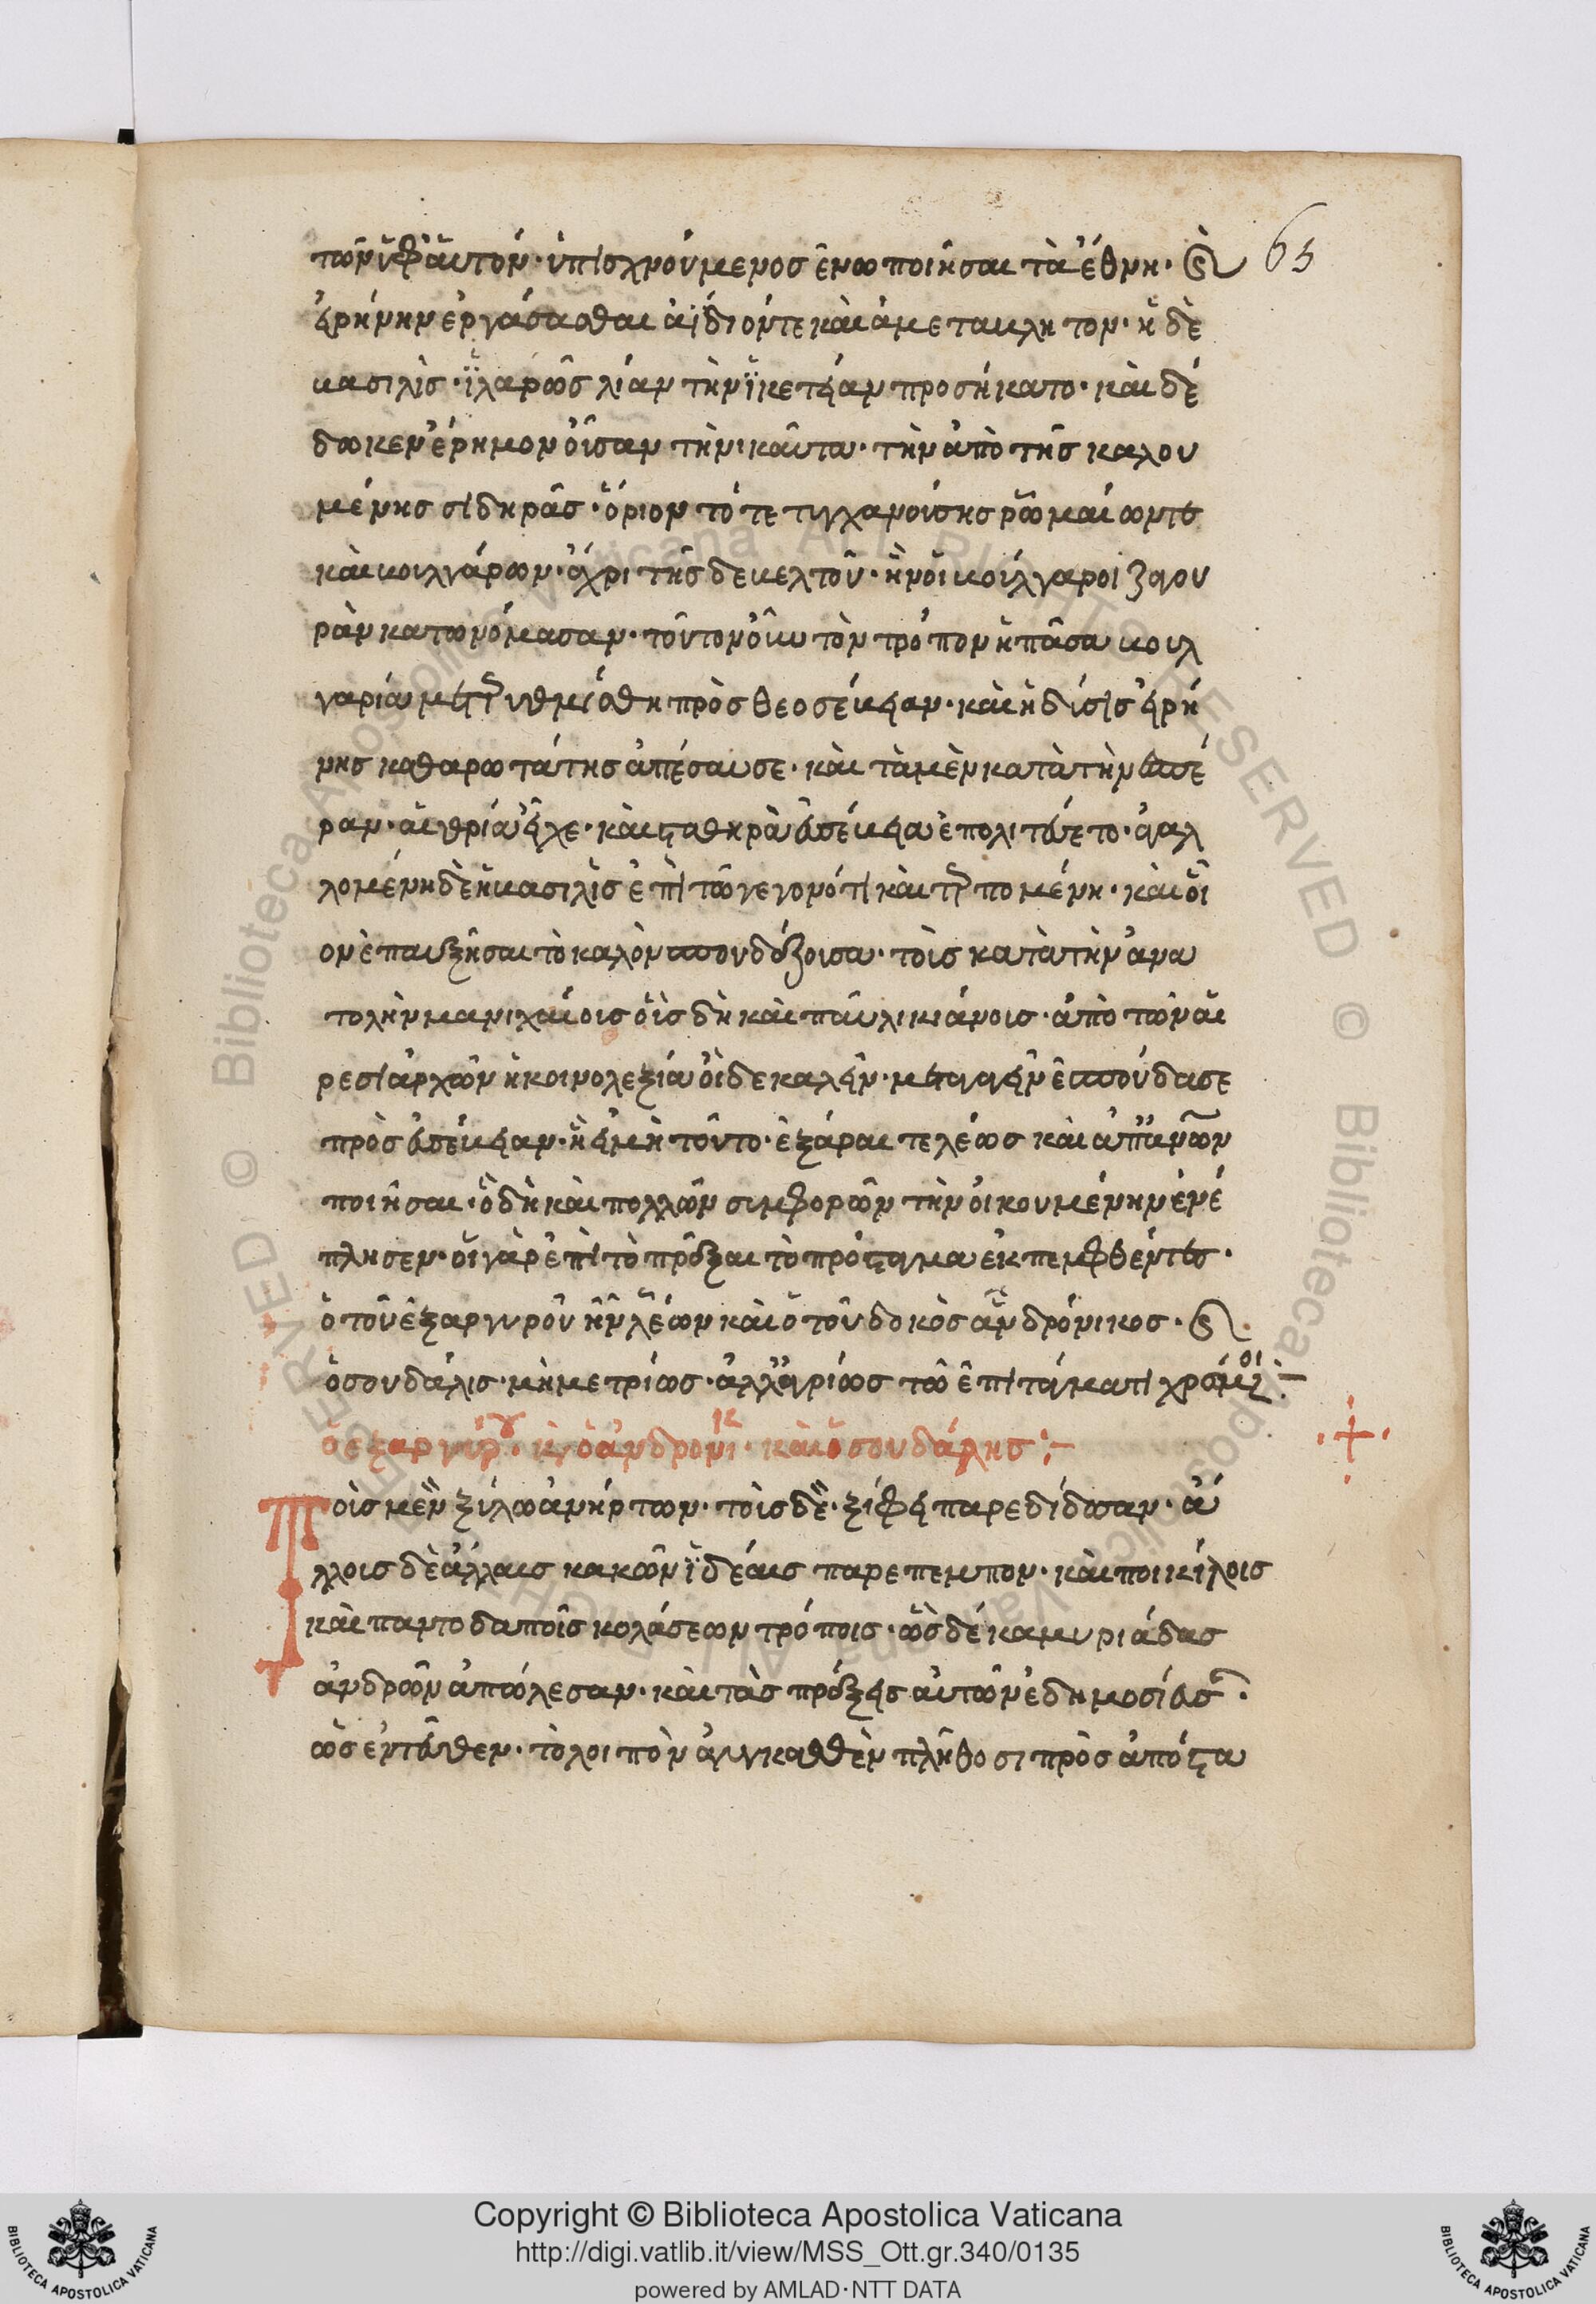 τῶν ὑφ' ἁυτὸν· ὑπισχνούμενος ἑνωποιῆσαι τὰ ἔθνη· καὶ 65
εἰρήνην εργάσασθαι ἀΐδιόν τε καὶ ἀμεταβλητον· ἡ δὲ
βασιλὶς· ἱλαρῶς λίαν τὴν ἱκετείαν προσήκατο· καὶ δέ
δωκεν ἔρημον οὖσαν τὴνικαῦτα· τὴν ἀπὸ τῆς καλου
μένης σιδηρᾶς· ὅριον τότε τυγχανούσης ῥωμαίων τε
καὶ βουλγάρων· ἄχρι τῆς δεβελτοῦ· ἣν οἱ βούλγαροι ζαγου
ρὰν κατωνόμασαν· τοῦτον οὖν τὸν τρόπον ἡ πᾶσα βουλ
γαρία μετερυθμίσθη πρὸς θεοσέβειαν· καὶ ἡ δύσις εἰρή
νης καθαρωτάτης ἀπέλαυσε· καὶ τὰ μὲν κατὰ τὴν ἑσπέ
ραν· αἰθρία εἶχε· καὶ σταθηρὰ ευσέβεια ἐπολιτεύετο· ἀγαλ
λομένη δὲ ἡ βασιλὶς ἐπὶ τῶ γεγονότι καὶ τερπομένη· καὶ οἷ
ον ἐπαυξῆσαι τὸ καλὸν σπουδάζουσα· τοὶς κατὰ τὴν ἀνα
τολὴν μανιχαίοις οὓς δὴ καὶ παυλικιάνοις· ἀπὸ τῶν αἱ
ρεσιαρχῶν ἡ κοινολεξία οἶδε καλεῖν· μετάγειν ἐσπούδασε
πρὸς ευσέβειαν· ἢ εἰ μὴ τοῦτο· ἐξάραι τελέως καὶ ἀπ' ἀνων
ποιῆσαι· ὃ δὴ καὶ πολλῶν συμφορῶν τὴν οἰκουμένην ἐνέ
πλησεν· οἱ γὰρ ἐπὶ τὸ πρᾶξαι τὸ πρόσταγμα εκπεμφθέντες·
ὁ τοῦ ἐξ αργυροῦ ἦν λέων καὶ ὁ τοῦ δουκὸς ἀνδρόνικος· καὶ
ὁ σουδάλις· μὴ μετρίως· ἀλλ' ἀγρίως τῶ ἐπιτάγματι χρώμενοι:-
ὁ εξ αργύρου· κ(αὶ) ὁ ἀνδρονικ· καὶ ὁ σουδάλης:-
Τοὺς μὲν ξύλω ἀνήρτων· τοὺς δὲ· ξίφει παρεδίδοσαν· ἄ
λλους δὲ ἄλλαις κακῶν ἰδέαις παρεπεμπον· καὶ ποικίλοις
καὶ παντοδαποῖς κολάσεων τρόποις· ὡς δέκα μυριάδας
ἀνδρῶν ἀπώλεσαν· καὶ τὰς πράξεις αὐτῶν ἐδημοσίευσαν·
ὡς ἐντεῦθεν· τὸ λοιπὸν ἀναγκασθὲν πλῆθος πρὸς ἀποστα